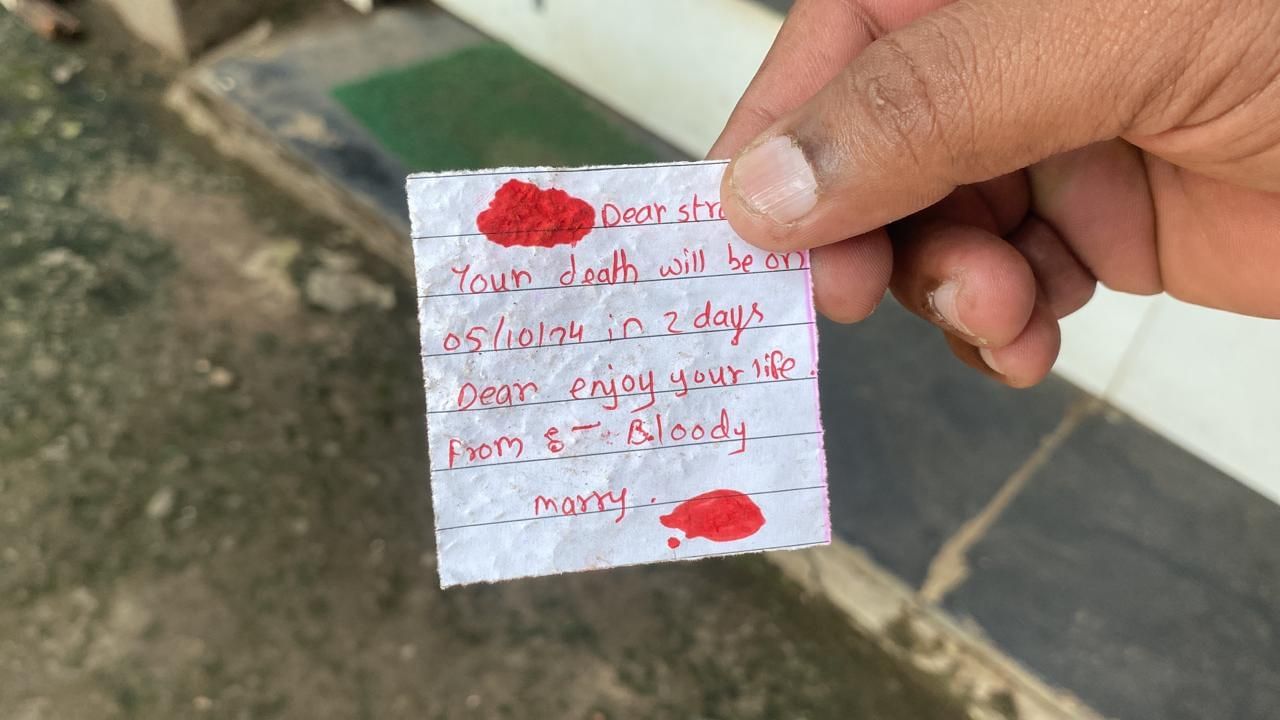 Dear
Your death will be on
05/10/24 in 2 days
Dear enjoy your life.
From :- Bloody
marry.